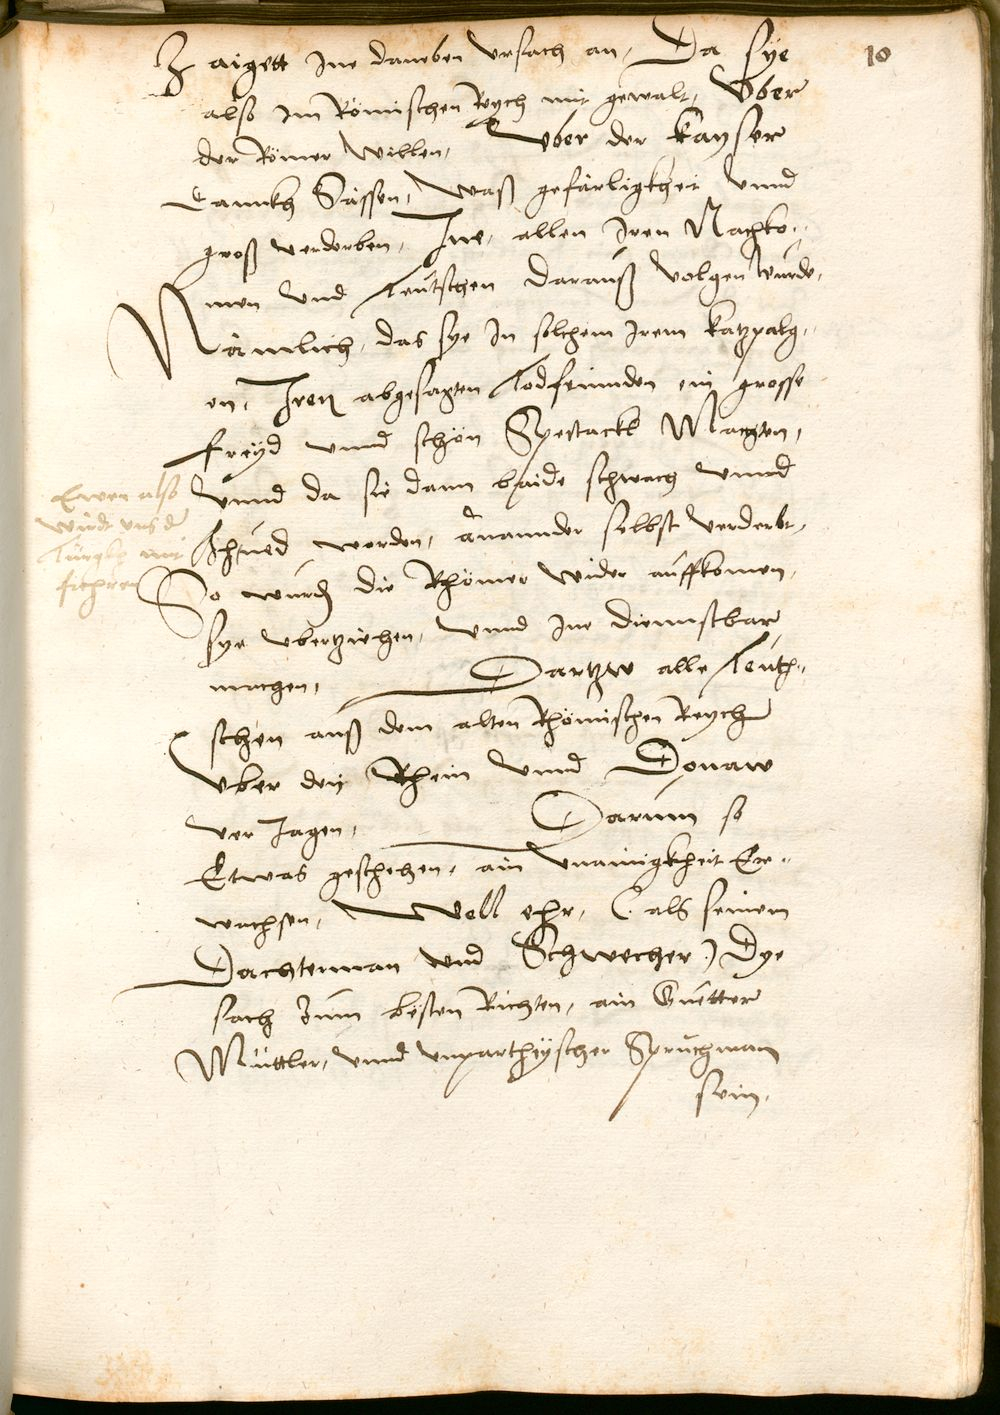 10
Zaigett Ine daneben Vrsach an, Da sye
also Im Römischen Reych mit gewalt, Vber
der Römer Willen, Vber der Kayser
Dannkh Sässen, Waß gefärligkheit vnnd
groß verderben, Ine, allen Iren Nachko-
men vnd Teutschen darauß volgen wurde,
Nämlich, das sye In solchem Irem katzpalg-
en, Iren abgesagten Todfeinnden ein grosse
freyd vnnd schön Spectackl Machten,
vnnd da sie dann baide schwach vnnd
müed worden, ananander selbst verderbt,
So wurden die Rhömer wider auffkomen,
sye vberziehen, vnnd Ine diennstbar
machen, Dartzw alle Teut-
schen auß dem alten Rhömischen Reych
Vber den Rhein vnnd Donaw
ver Jagen, Darumm so
Etwas geschehen, ain Vnainigkheit Er-
wachsen, Well ehr, (: als seinem
Dachterman vnd Schwecher :) Dye
sach Zum besten Richten, ain Guetter
Mittler, vnnd vnpartheyscher Spruchman
sein,
Ewen also
wirdt vns d
Türgkh mit
fahren